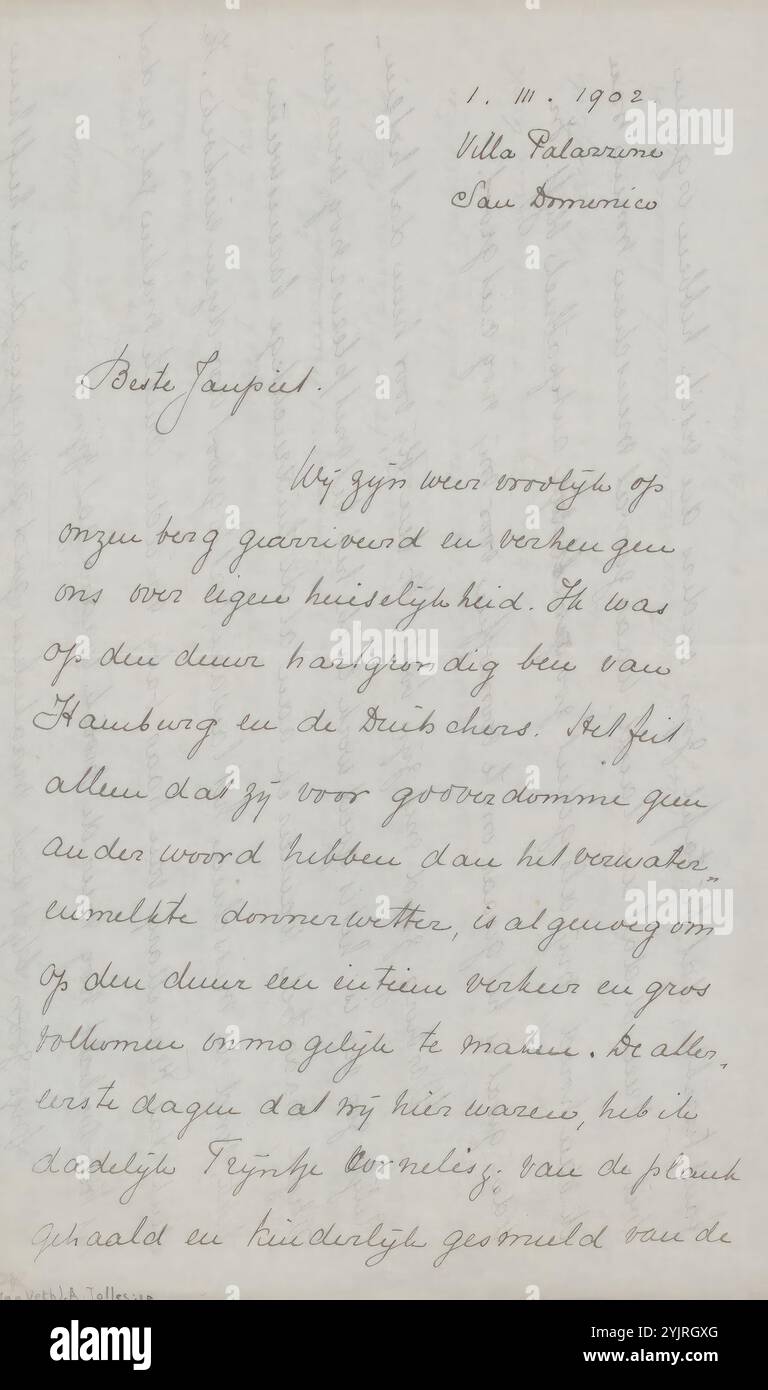 1. III. 1902.
Villa Palazzine
San Domenico
Beste Janpiet.
Wij zijn weer vroolijk op
onzen berg gearriveerd en verheugen
ons over eigen huiselijkheid. Ik was
op den duur hartgrondig beu van
Hamburg en de Duitschers. Het feit
alleen dat zij voor gooverdomme geen
ander woord hebben dan het verwater„
enmelkte donnerwetter, is al genoeg om
op den duur een intiem verkeer en gros
volkomen onmogelijk te maken. De aller„
eerste dagen dat wij hier waren, heb ik
dadelijk Trijntje Cornelisz. van de plank
gehaald en kinderlijk gesmuld van de
Veth).A Tolles
alamy
Image ID: 2YJRGXG
www.alamy.com